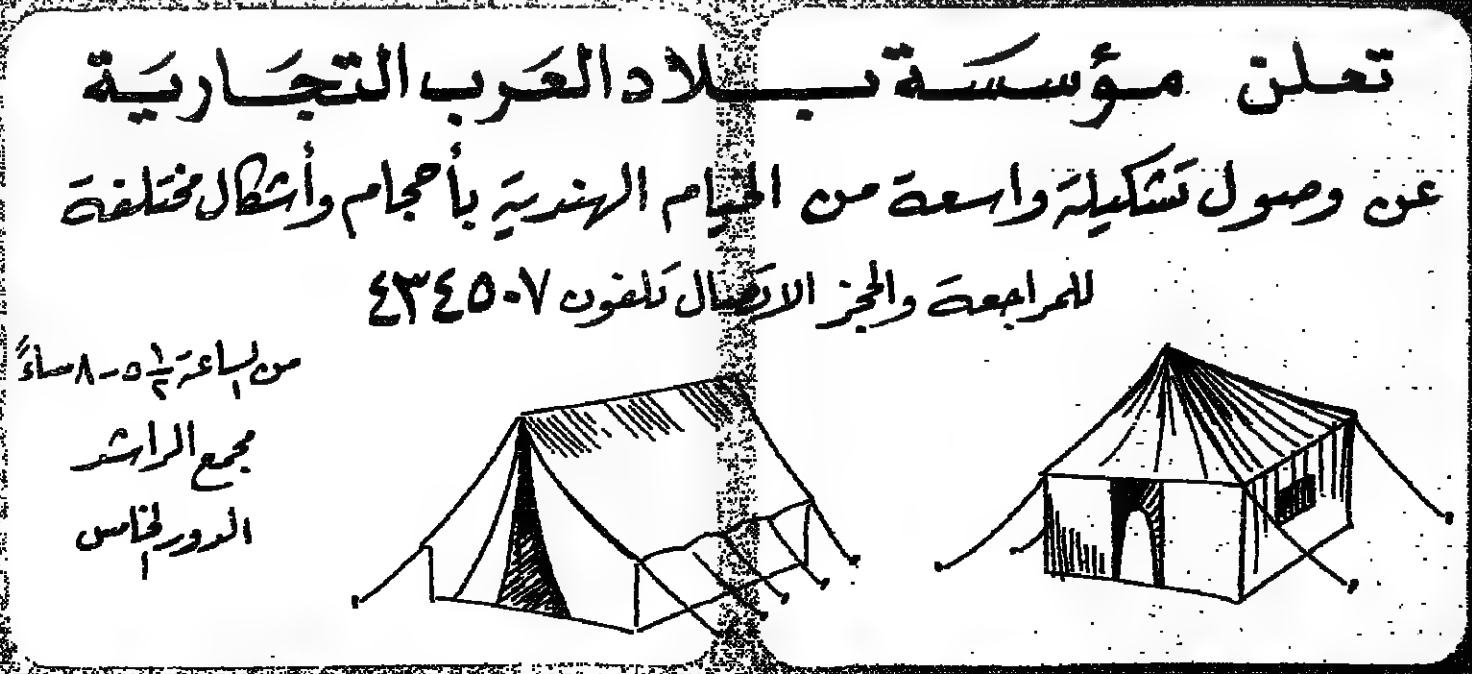 تعلن مؤسسة بلاد العرب التجارية
عن وصول تشكيلة واسعة من الخيام الهندية بأحجام وأشكال مختلفة
للمراجعة والحجز الاتصال تلفون ٤٣٤٥٠٧
من الساعة ٥ ١/٢ - ٨ مساءً
مجمع الراشد
الدور الخامس